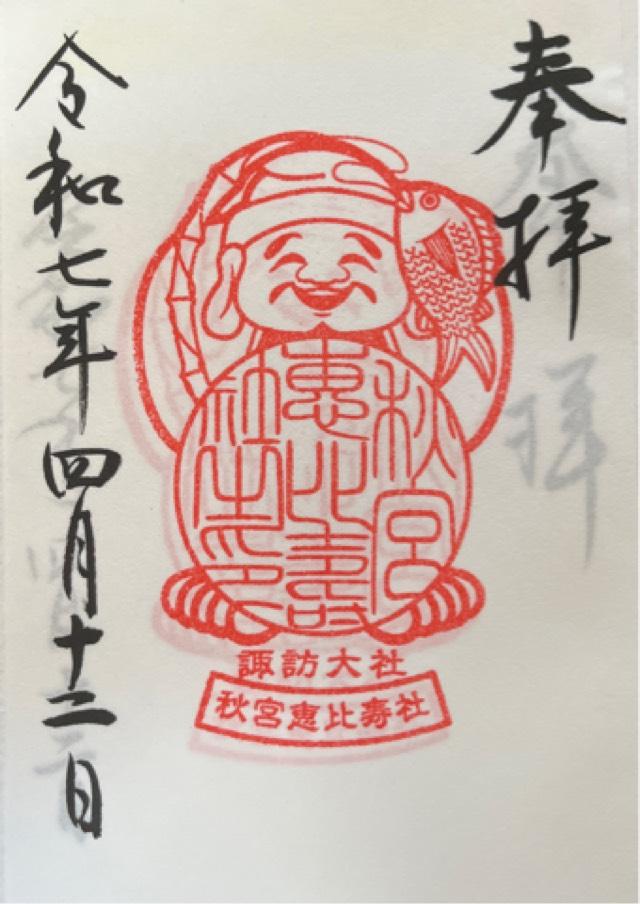 奉拝
秋宮
恵比寿
社之印
諏訪大社
秋宮恵比寿社
令和七年四月十二日